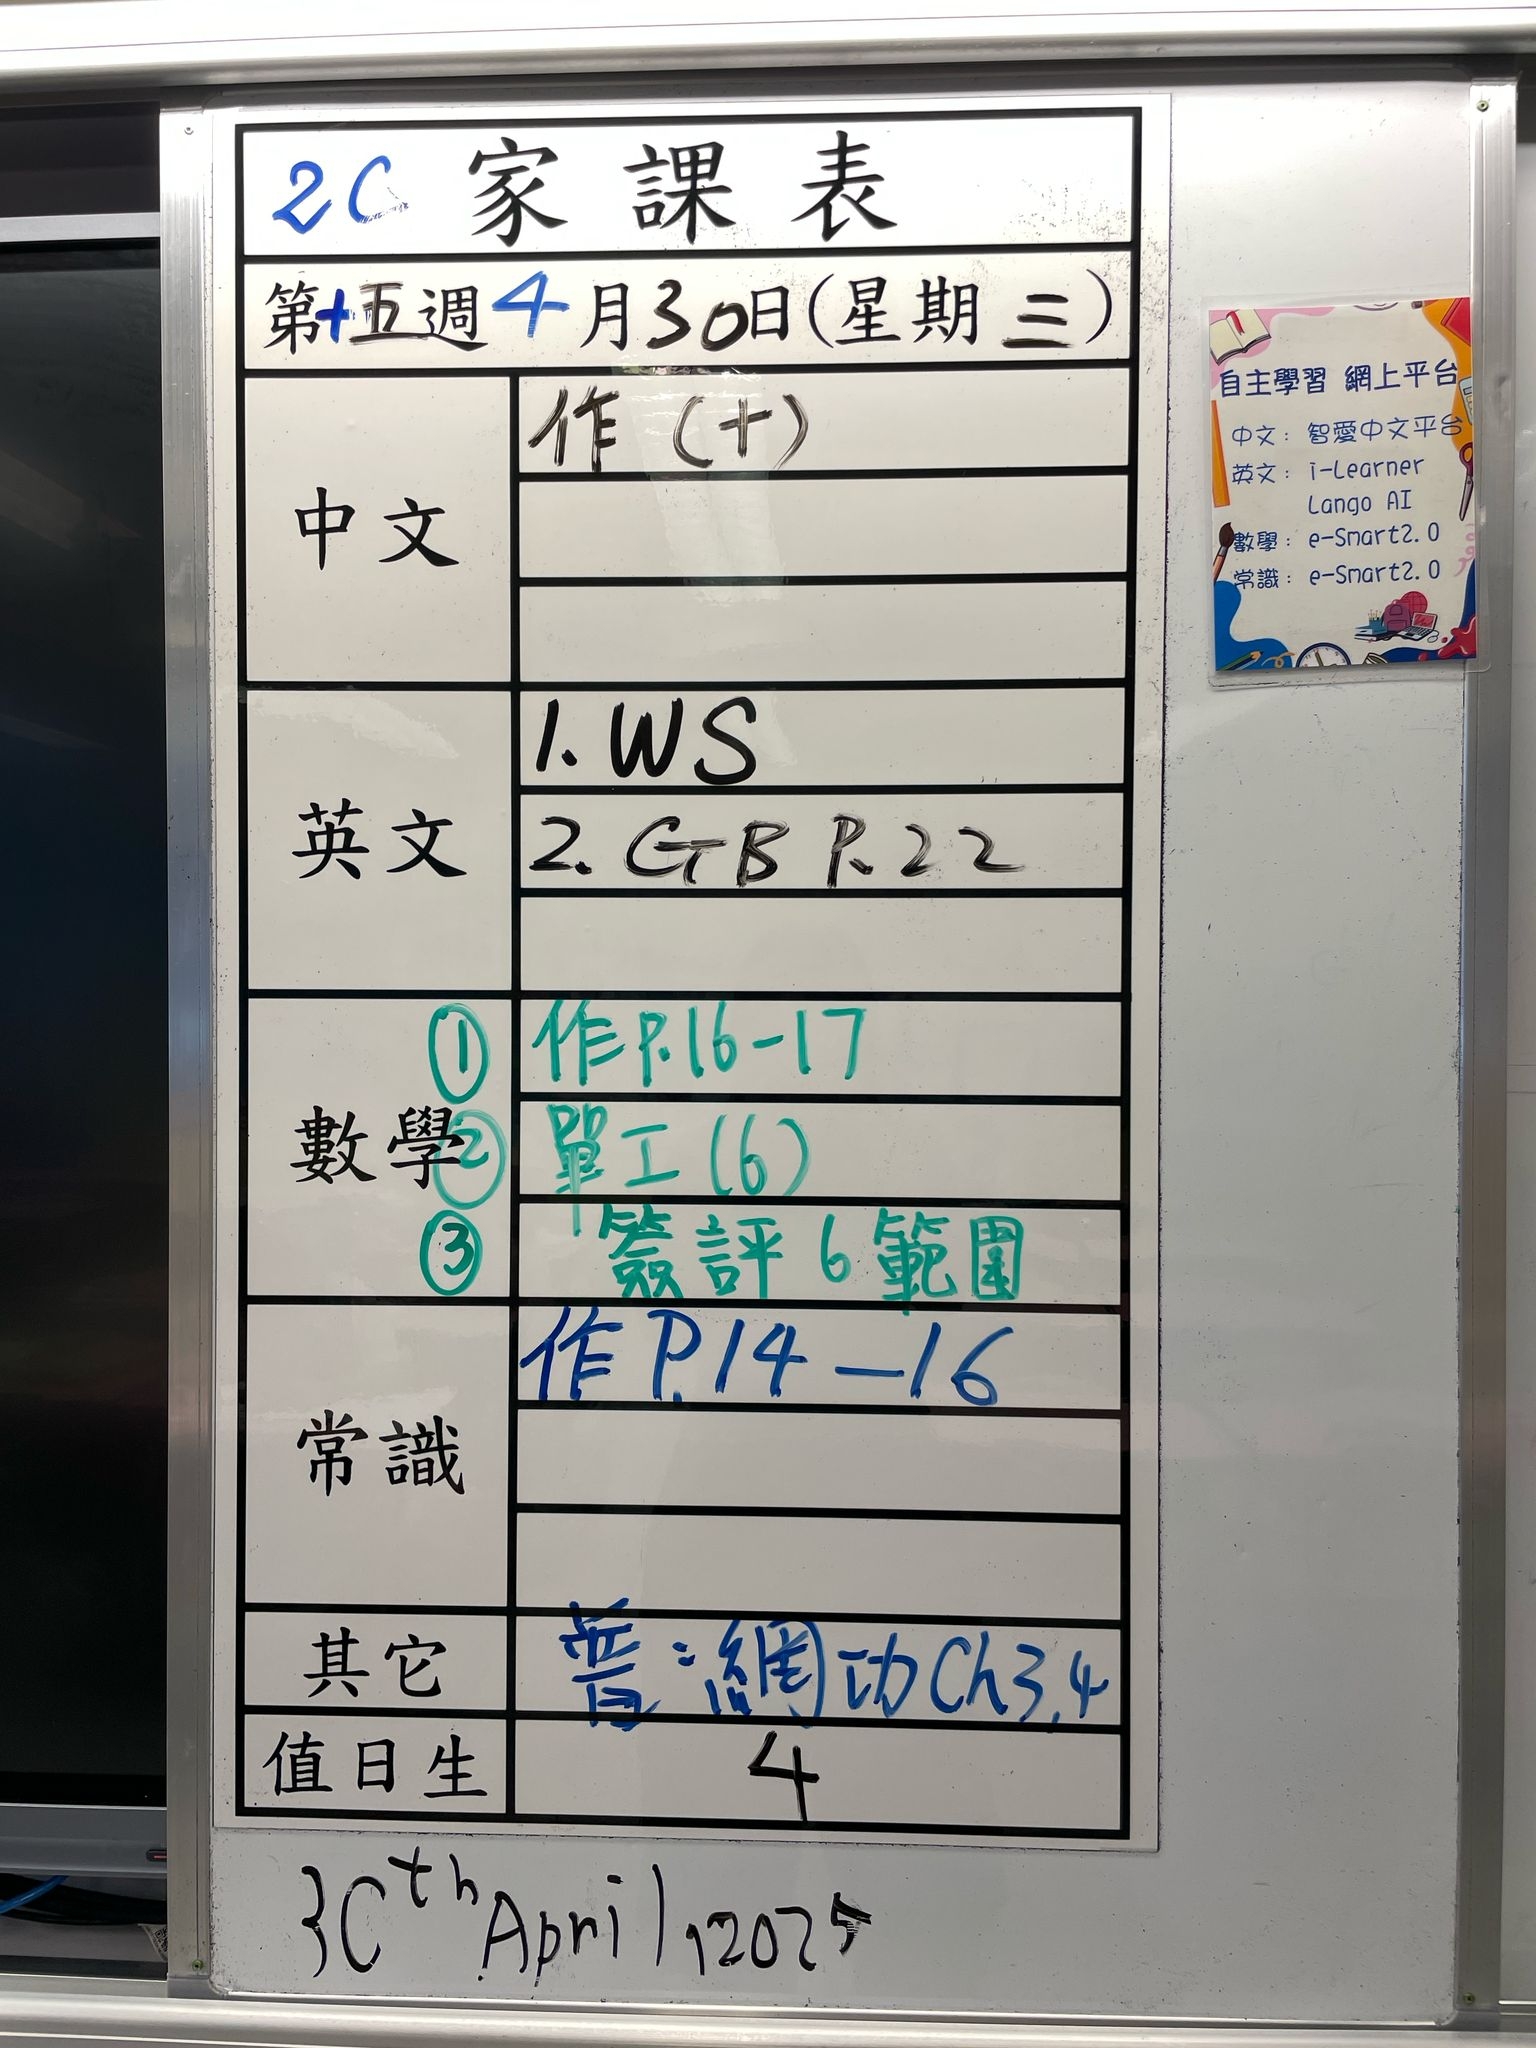 2C 家課表
第十五週4月30日(星期三)
中文
作(十)
英文
1. WS
2. GB P.22
數學
① 作P.16-17
② 單工(6)
③ 簽評6範圍
常識
作P.14-16
其它
普:網功Ch3,4
值日生
4
30th April, 2025
自主學習 網上平台
中文: 智愛中文平台
英文: i-Learner
Lango AI
數學: e-Smart2.0
常識: e-Smart2.0